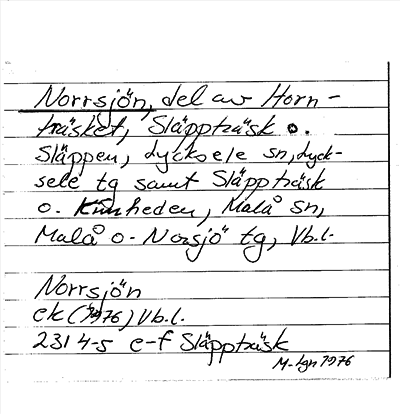 Norrsjön, del av Horn-
träsket, Släppträsk o.
Släppen, Lycksele sn, Lyck-
sele tg samt Släppträsk
o. Kinheden, Malå sn,
Malå o. Norsjö tg, Vb.l.
Norrsjön
ek (1976) Vb.l.
2314-5 e-f Släppträsk
M-lgn 1976